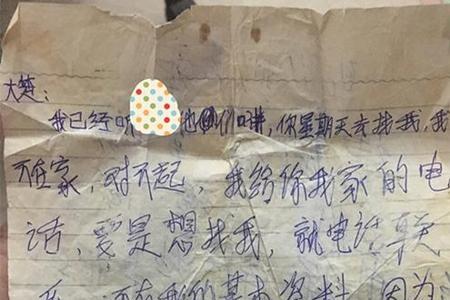 大楚：
我已经听他们讲，你星期天去找我，我
不在家，对不起，我给你我家的电
话，要是想找我，就电话联
系，的基本资料，因为